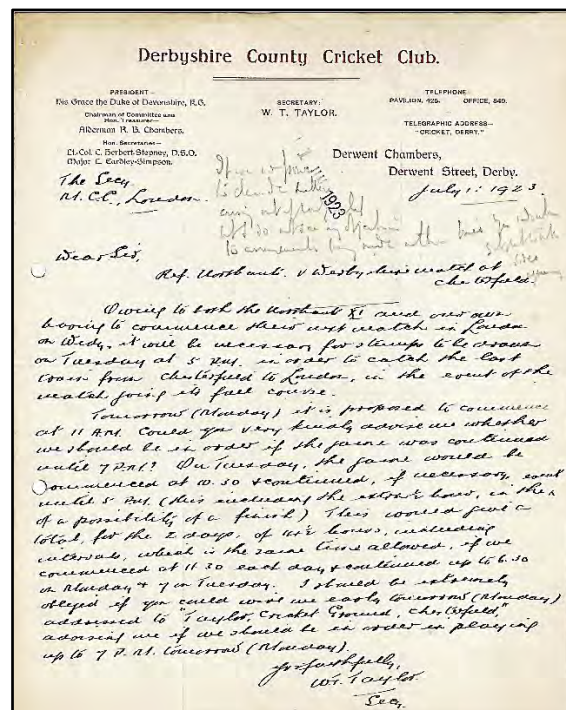 Derbyshire County Cricket Club.
PRESIDENT—
His Grace the Duke of Devonshire, K.G.
Chairman of Committee and
Hon. Treasurer—
Alderman R. B. Chambers.
Hon. Secretaries—
Lt-Col. C. Herbert-Stepney, D.S.O.
Major C. Eardley-Simpson.
SECRETARY:
W. T. TAYLOR.
TELEPHONE
PAVILION, 425. OFFICE, 849.
TELEGRAPHIC ADDRESS—
"CRICKET, DERBY."
Derwent Chambers,
Derwent Street, Derby.
July 1: 1923
The Secy
M.C.C, London.
1923
Dear Sir,
Ref. Northants. v Derbyshire match at
Chesterfield.
Owing to both the Northant XI and our own
having to commence their next match in London
on Wedy, it will be necessary for stumps to be drawn
on Tuesday at 5 P.M. in order to catch the last
train from Chesterfield to London, in the event of the
match going its full course.
Tomorrow (Monday) it is proposed to commence
at 11 A.M. Could you very kindly advise me whether
we should be in order if the game was continued
until 7 P.M? On Tuesday, the game would be
commenced at 10.30 & continued, if necessary,
until 5 P.M. (this including the extra ½ hour, in the event
of a possibility of a finish) This would give a
total, for the 2 days, of 14½ hours, including
intervals, which is the same time allowed, if we
commenced at 11.30 each day & continued up to 6.30
on Monday & 7 on Tuesday. I should be extremely
obliged if you could wire me early tomorrow (Monday)
addressed to "Taylor, Cricket Ground, Chesterfield,"
advising me if we should be in order in playing
up to 7 P.M. tomorrow (Monday).
Yrs faithfully,
W.T. Taylor
Secy.